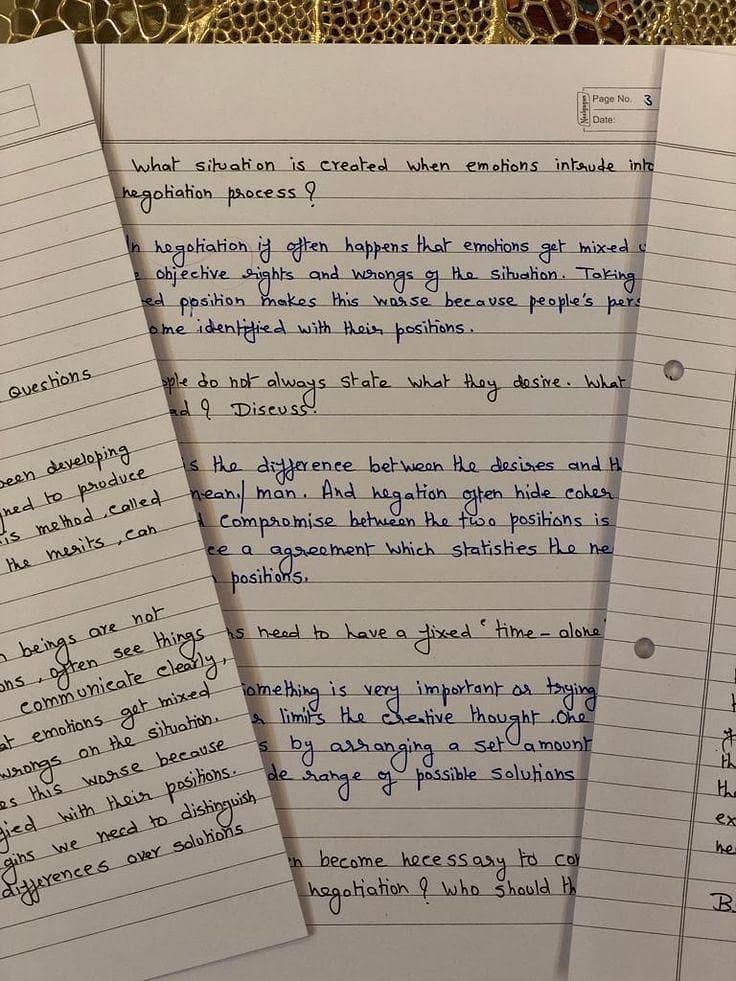 Page No. 3
Date:
What situation is created when emotions intrude into
negotiation process ?
In negotiation if often happens that emotions get mixed
objective rights and wrongs of the situation. Taking
position makes this worse because people's
identified with their positions.
do not always state what they desire. What
? Discuss.
is the difference between the desires and
mean/ man. And negation often hide
compromise between the two positions is
a agreement which statisties the
positions.
need to have a fixed 'time - alone'
something is very important or trying
limits the creative thought . One
by arranging a set amount
range of possible solutions
become necessary to
negotiation ? Who should
Questions
been developing
to produce
method , called
the merits , can
beings are not
, often see things
communicate clearly,
emotions get mixed
wrongs on the situation.
this worse because
with their positions.
we need to distinguish
differences over solutions
B.